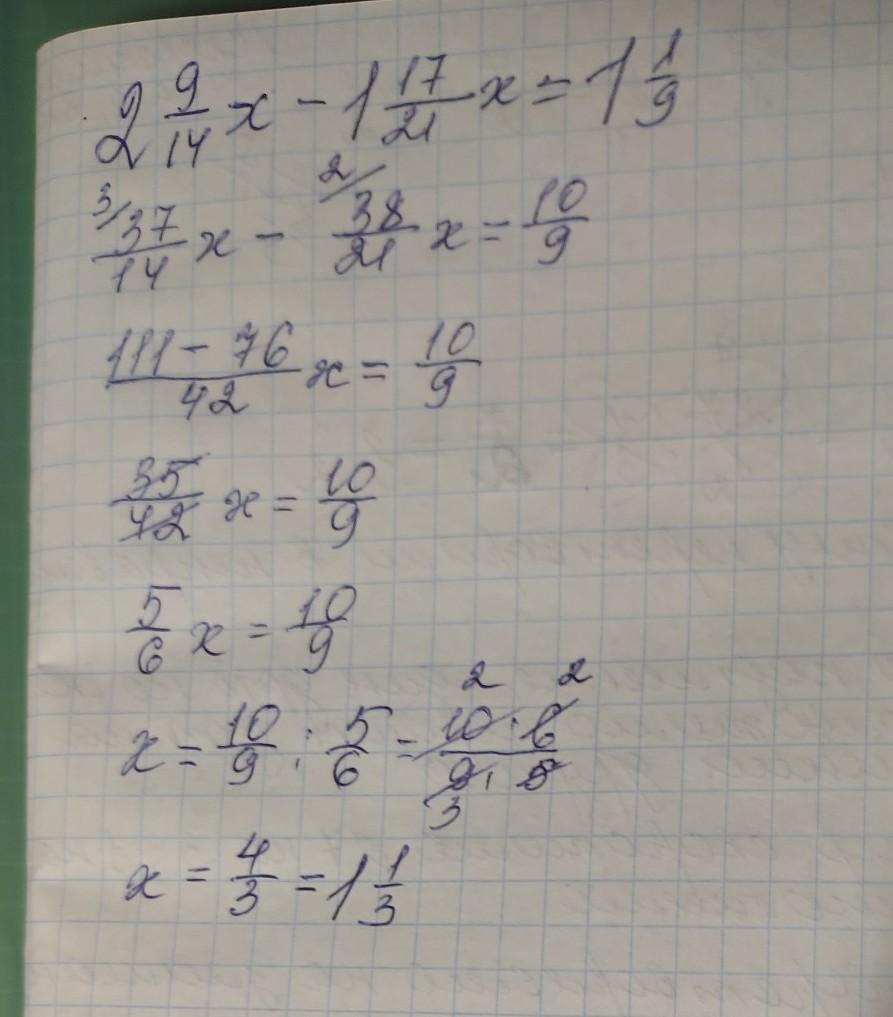 2 9/14 x - 1 17/21 x = 1 1/9
3/ 37/14 x - 2/ 38/21 x = 10/9
111 - 76/42 x = 10/9
35/42 x = 10/9
5/6 x = 10/9
x = 10/9 : 5/6 = 10 2 · 6 2/9 3 · 5
x = 4/3 = 1 1/3